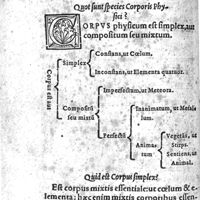 Quot sunt species Corporis Phy-
sici?
CORPUS physicum est simplex, aut
compositum seu mixtum.
Corpus est aut
Simplex
Constans, ut Cœlum.
Inconstans, ut Elementa quatuor.
Compositũ
seu mixtũ
Imperfectum, ut Meteora.
Perfectũ
Inanimatum, ut Metal-
lum.
Animatum
Vegetãs, ut
Stirps.
Sentiens, ut
Animal.
Quid est Corpus simplex?
Est corpus mixtis essentiale: ut cœlum & e-
lementa: hæc enim mixtis corporibus essen-